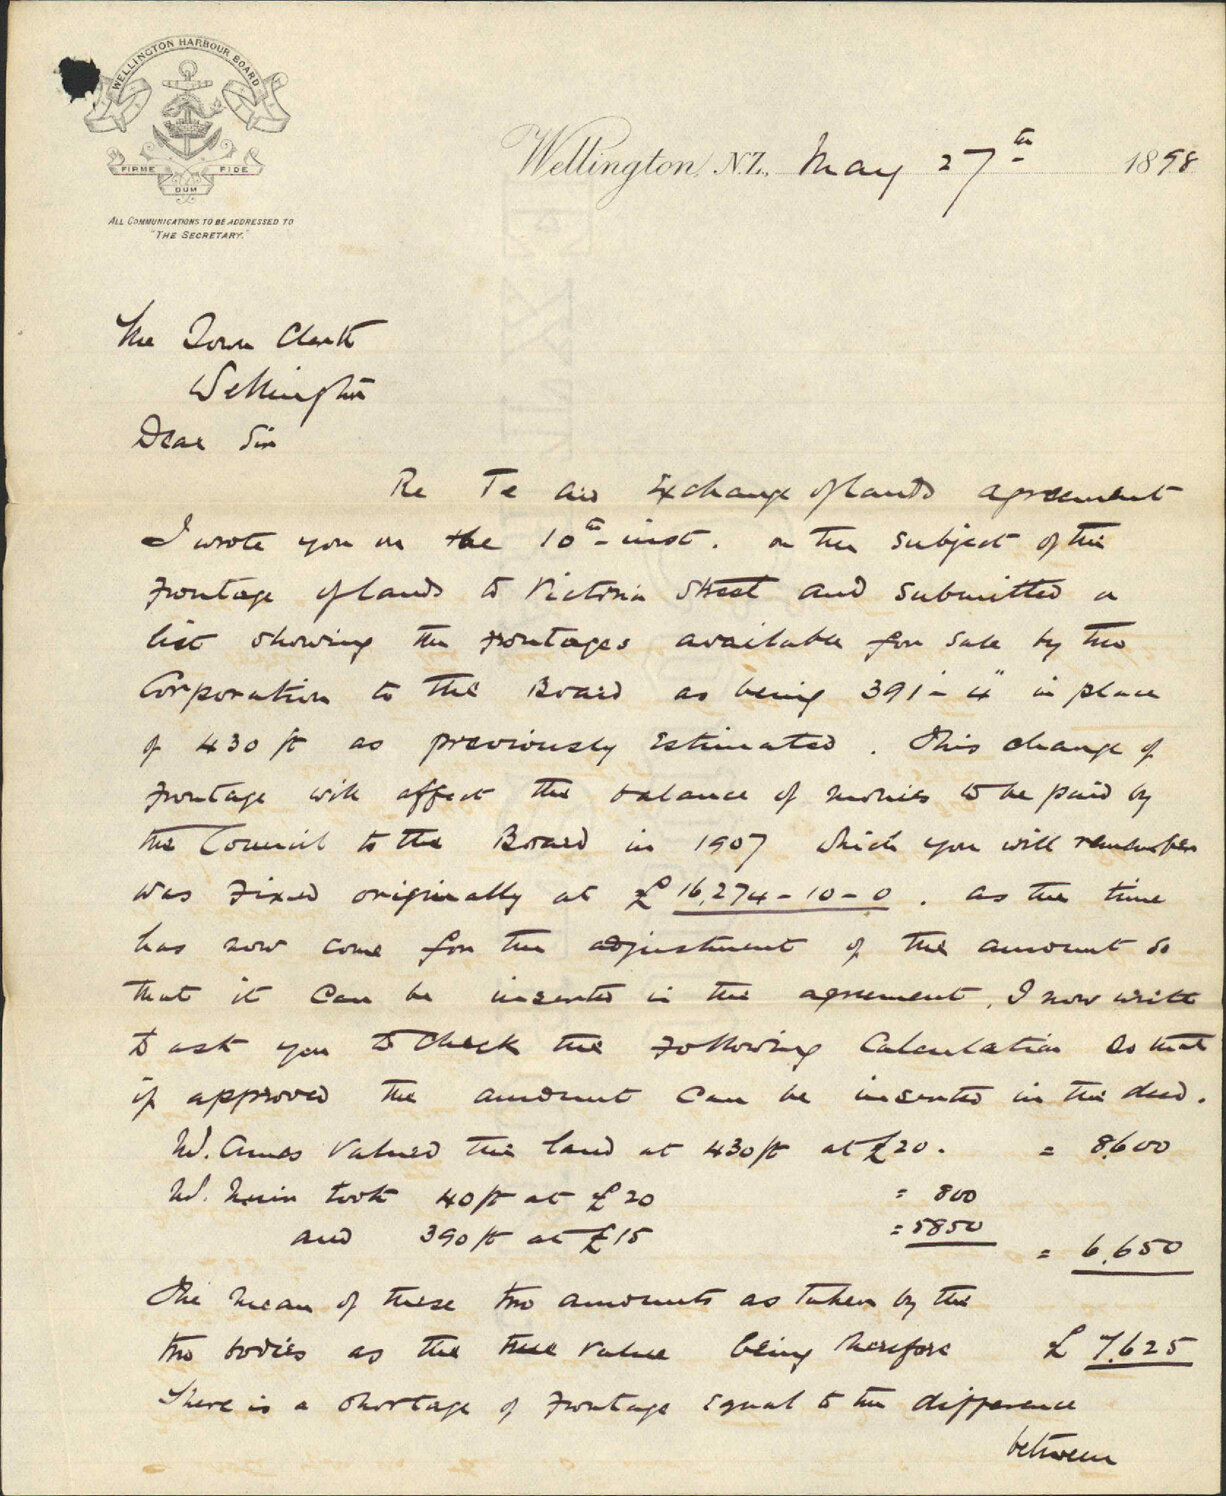 WELLINGTON HARBOUR BOARD
FIRME DUM FIDE
ALL COMMUNICATIONS TO BE ADDRESSED TO
"THE SECRETARY."
Wellington, N.Z., May 27th 1898
The Town Clerk
Wellington
Dear Sir
Re Te Aro Exchange of lands agreement
I wrote you on the 10th inst. on the subject of the
frontage of lands to Victoria Street and submitted a
list showing the frontages available for sale by the
Corporation to the Board as being 391'-4" in place
of 430 ft as previously estimated. This change of
frontage will affect the balance of monies to be paid by
the Council to the Board in 1907 which you will remember
was fixed originally at £16,274-10-0. as the time
has now come for the adjustment of the amount so
that it can be inserted in the agreement, I now write
to ask you to check the following calculation so that
if approved the amount can be inserted in the deed.
Mr. Ames valued the land at 430 ft at £20. = 8600
Mr. took 40 ft at £20 = 800
and 390 ft at £15 = 5850 = 6,650
The mean of these two amounts as taken by the
two bodies as the true value being therefore £7,625
There is a shortage of frontage equal to the difference
between